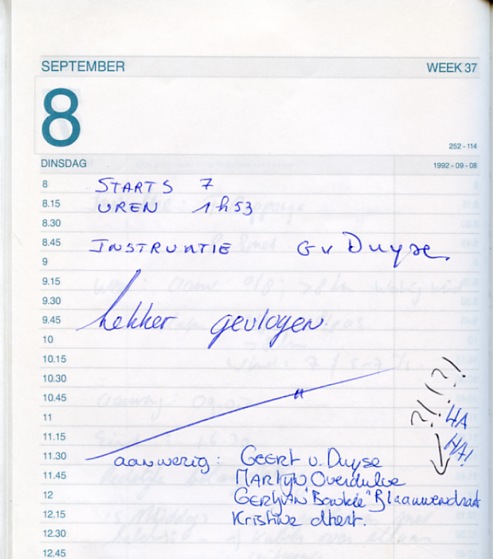 SEPTEMBER WEEK 37
8
252 - 114
DINSDAG 1992 - 09 - 08
8 STARTS 7
8.15 UREN 1h53
8.30
8.45 INSTRUKTIE G v Duyse.
9
9.15
9.30
9.45 lekker gevlogen
10
10.15
10.30
10.45 "
11 ?!(?! HA
11.15 HA!
11.30 aanwezig: Geert v. Duyse
11.45 Martijn Overdulve
12 GERTJAN "Baukie" Blaauwendraat
12.15 Kristine
12.30
12.45